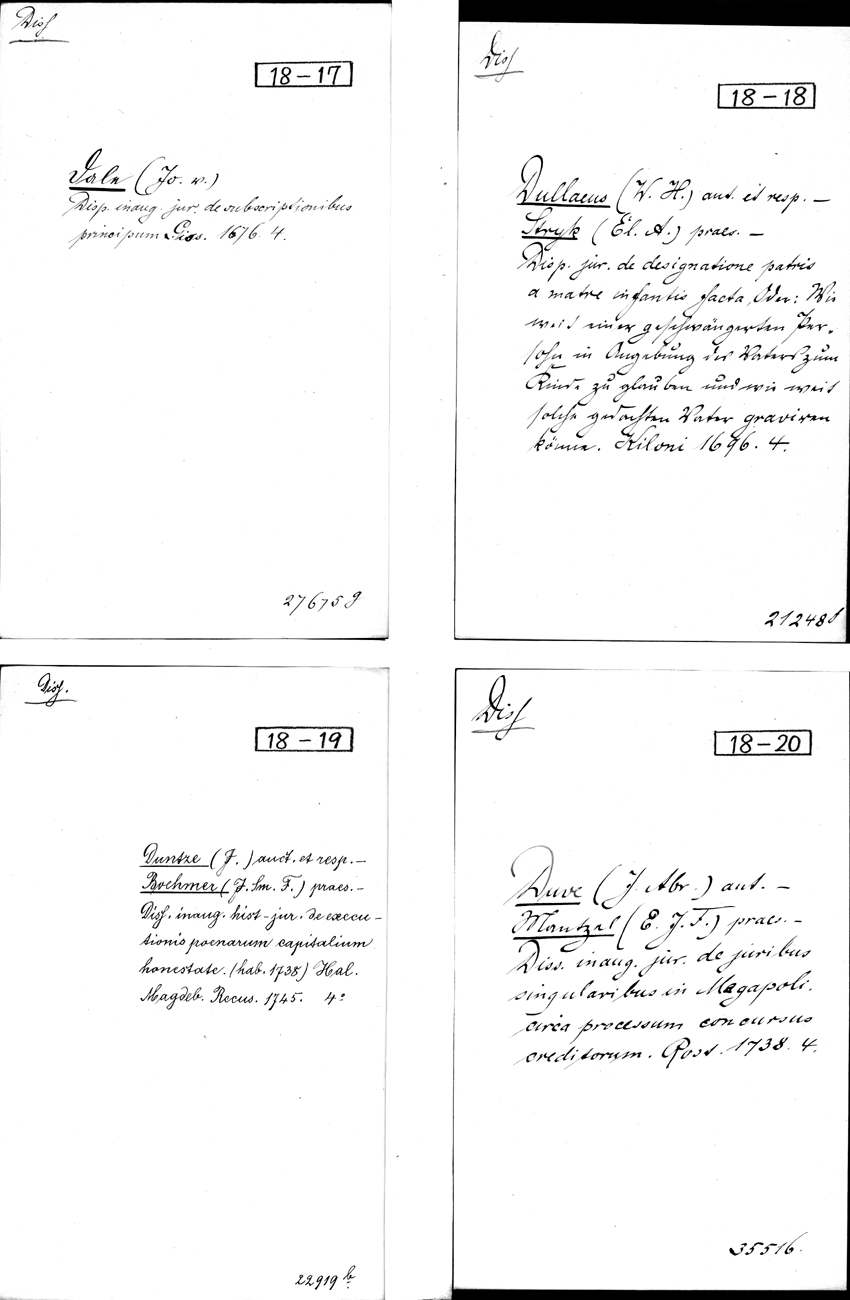 Diss
18-17
Dale (Jo. v.)
Disp. inaug. jur. de subscriptionibus
principum Giss. 1676. 4.
27675 g
Diss
18-18
Dullaeus (W. H.) aut. et resp. —
Stryk (El. A.) praes. —
Disp. jur. de designatione patris
a matre infantis facta, Oder: Wie
weit einer geschwängerten Per-
sohn in Angebung des Vaters zum
Kinde zu glauben und wie weit
solche gedachten Vater graviren
könne. Kiloni 1696. 4.
21248
Diss.
18-19
Duntze (J.) auct. et resp. —
Boehmer (J. Sm. F.) praes. —
Diss. inaug. hist-jur. de execu-
tionis poenarum capitalium
honestate. (hab. 1738) Hal.
Magdeb. Recus. 1745. 4º
22919 b
Diss
18-20
Duve (J. Abr.) aut. —
Mantzel (E. J. F.) praes. —
Diss. inaug. jur. de juribus
singularibus in Megapoli.
circa processum concursus
creditorum. Rost. 1738. 4.
35516.